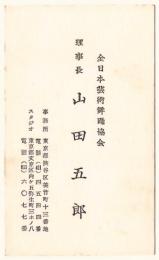 全日本芸術舞踊協会
理事長
山田五郎
事務所 東京都渋谷区美竹町十三番地
電話(組)四五四四番
スタジオ 東京都文京区向ケ丘弥生町三ホノ八
電話(組)六〇七七番